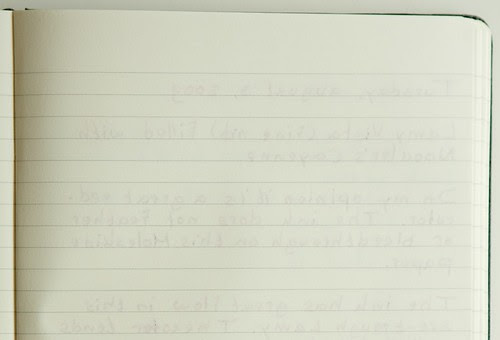 Tuesday, august 2009
Lamy Vista (fine nib) filled with
Noodler's Cayenne
In my opinion it's a great red-
color. The ink does not feather
or bleedthrough on this Moleskine
paper.
The ink has great flow in this
Lamy. I